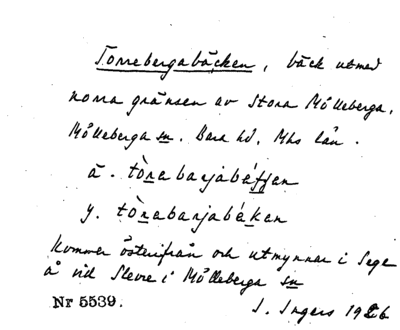 Torrebergabäcken, bäck utmed
norra gränsen av Stora Mölleberga,
Mölleberga sn. Bara hd. Mhs län.
ä. tòrabarjabéﬀjan
y. tòrabarjabékan
Kommer österifrån och utmynnar i Sege
å vid Slevre i Mölleberga sn
Nr 5539.
I. Ingers 1926